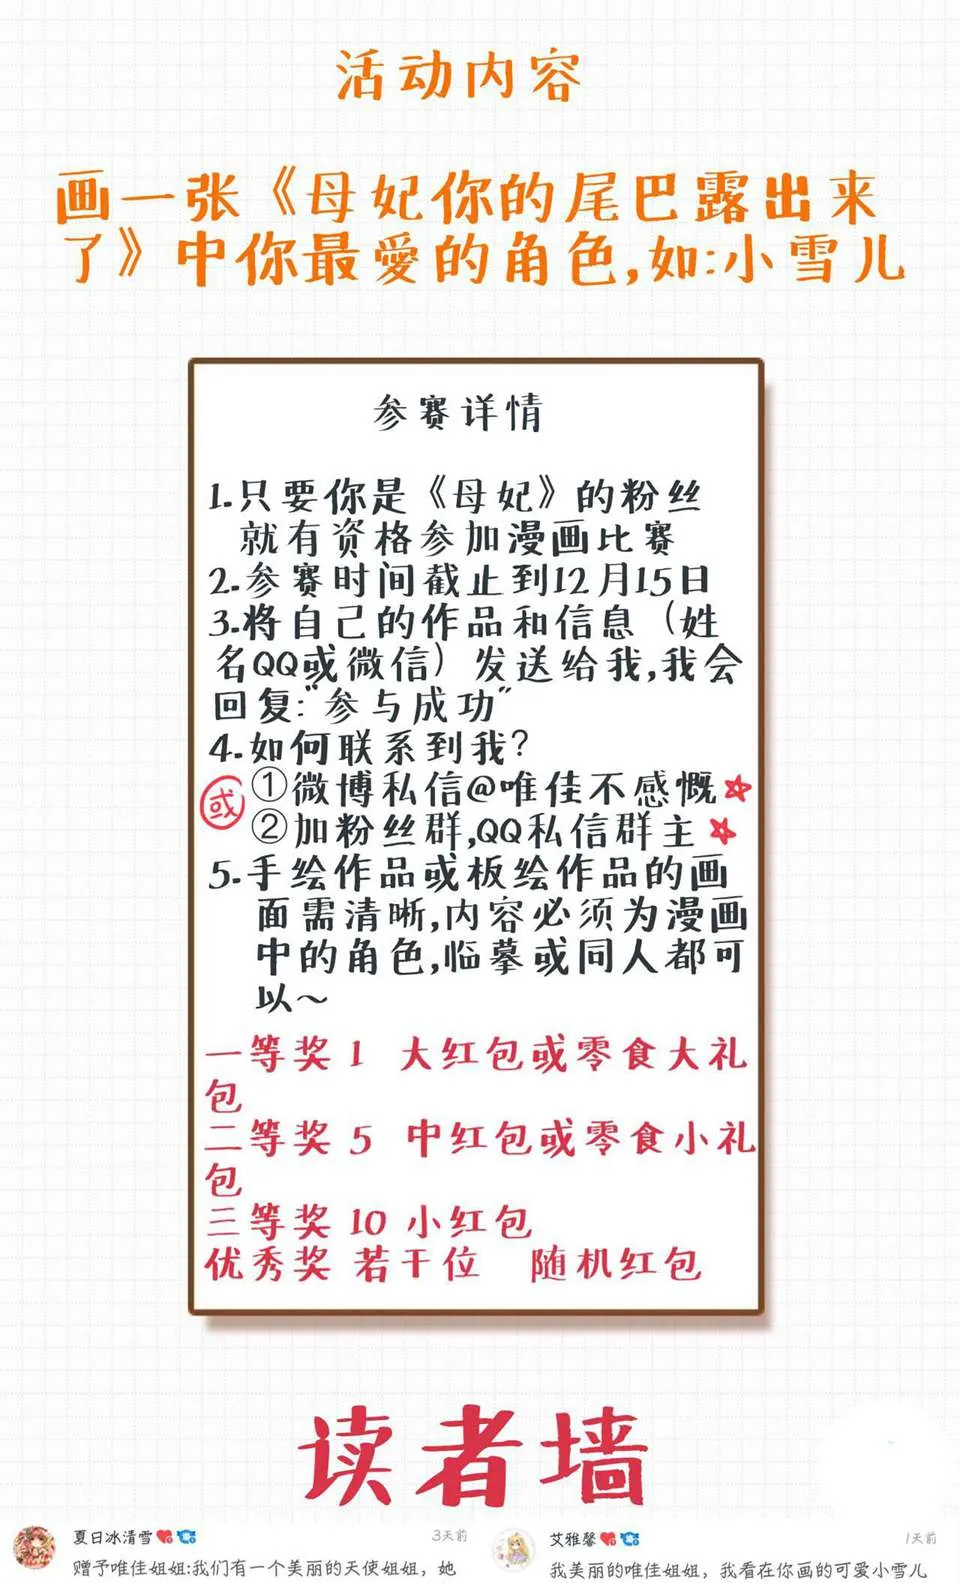 活动内容
画一张《母妃你的尾巴露出来
了》中你最愛的角色,如:小雪儿
参赛详情
1.只要你是《母妃》的粉丝
就有资格参加漫画比赛
2.参赛时间截止到12月15日
3.将自己的作品和信息（姓
名QQ或微信）发送给我,我会
回复:"参与成功"
4.如何联系到我?
或
①微博私信@唯佳不感慨
②加粉丝群,QQ私信群主
5.手绘作品或板绘作品的画
面需清晰,内容必须为漫画
中的角色,临摹或同人都可
以～
一等奖 1 大红包或零食大礼
包
二等奖 5 中红包或零食小礼
包
三等奖 10 小红包
优秀奖 若干位 随机红包
读者墙
夏日冰清雪
3天前
赠予唯佳姐姐:我们有一个美丽的天使姐姐，她
艾雅馨
1天前
我美丽的唯佳姐姐，我看在你画的可爱小雪儿